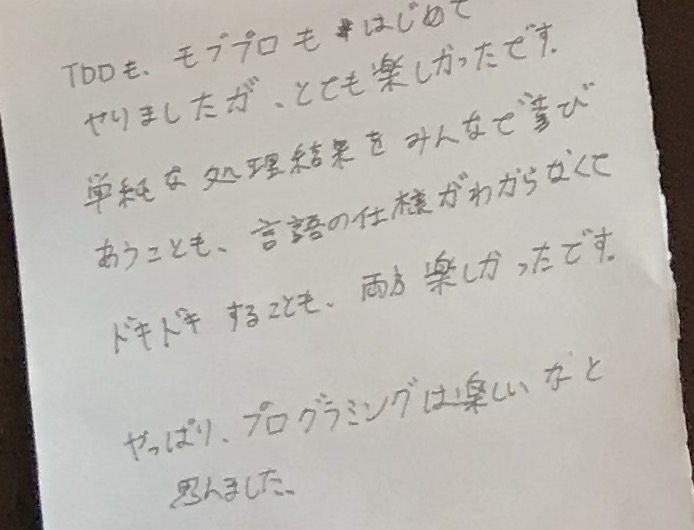 TDDも、モブプロもはじめて
やりましたが、とても楽しかったです。
単純な処理結果をみんなで喜び
あうことも、言語の仕様がわからなくて
ドキドキすることも、両方楽しかったです。
やっぱり、プログラミングは楽しいなと
思いました。